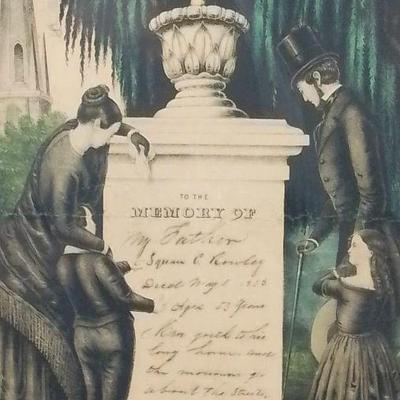 TO THE
MEMORY OF
My Father
Squire C. Rowley
Died May
Aged 53 Years
Man goeth to his
long home and
the mourners go
about the Streets,